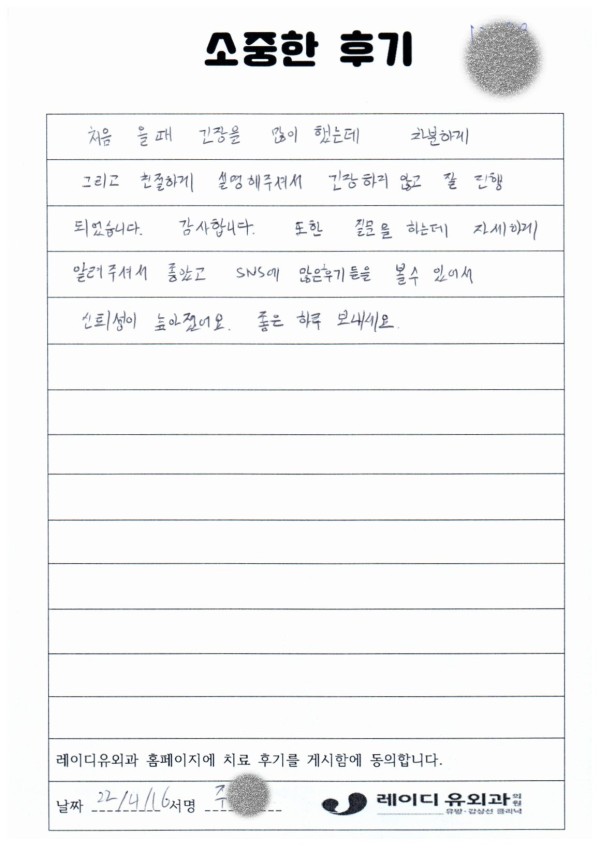 소중한 후기
처음 올때 긴장을 많이 했는데 차분하게
그리고 친절하게 설명해주셔서 긴장하지 않고 잘 진행
되었습니다. 감사합니다. 또한 질문을 하는데 자세하게
알려주셔서 좋았고 SNS에 많은후기들을 볼수 있어서
신뢰성이 높아졌어요. 좋은 하루 보내세요.
레이디유외과 홈페이지에 치료 후기를 게시함에 동의합니다.
날짜 22/4/16 서명 주
레이디 유외과의원
유방·갑상선 클리닉